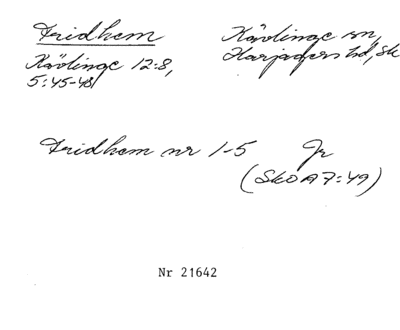 Fridhem
Kävlinge sn,
Harjagers hd, Sk
Kävlinge 12:8,
5:45-48
Fridhem nr 1-5 Jr
(SkO A7:49)
Nr 21642